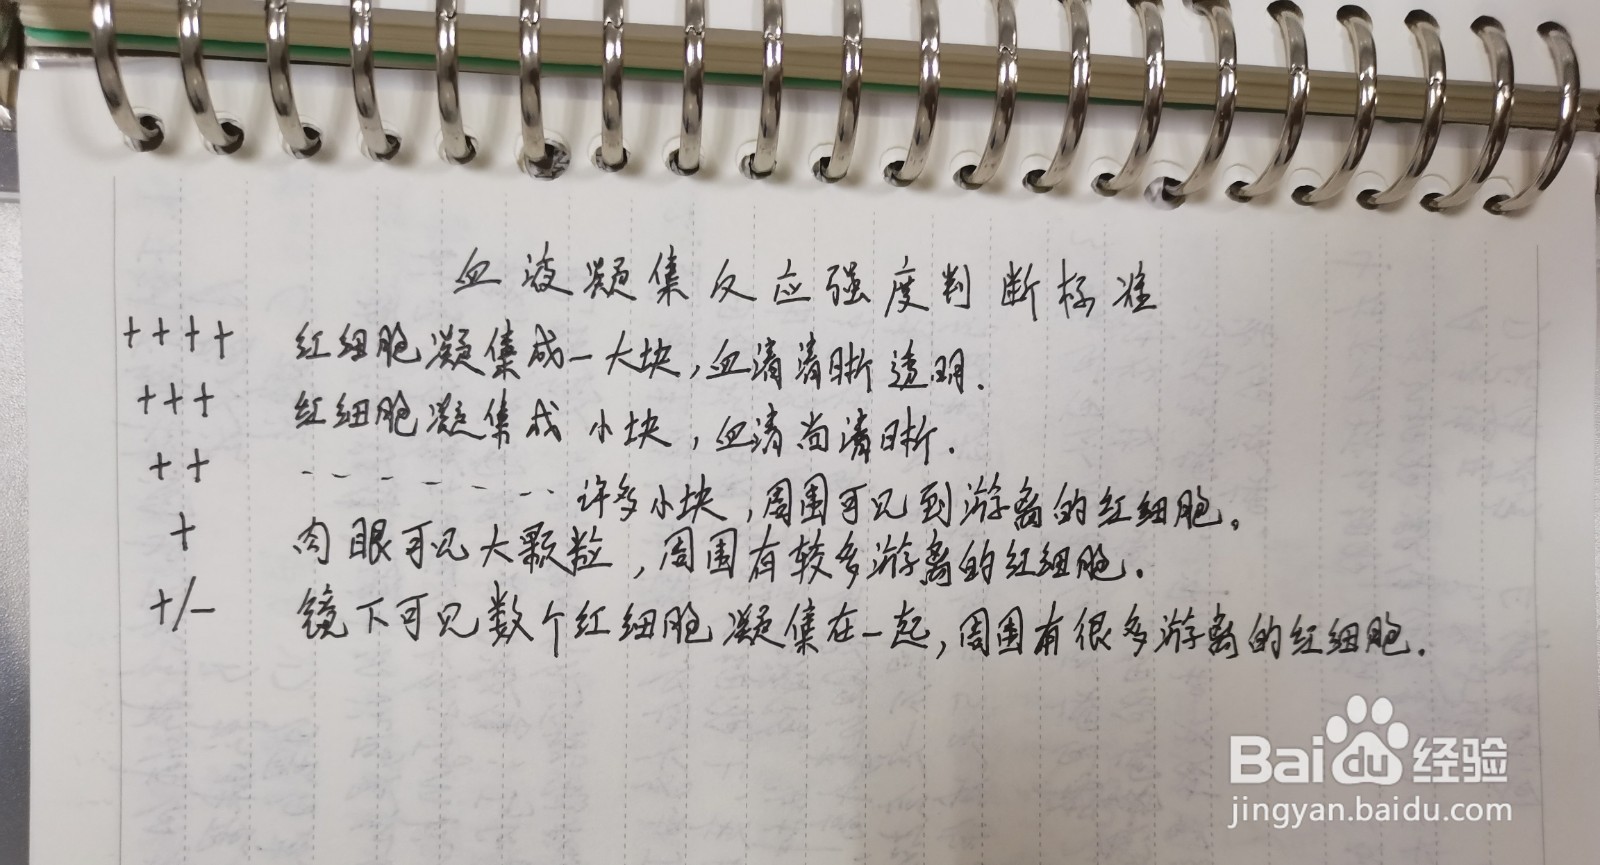 血液凝集反应强度判断标准
++++ 红细胞凝集成一大块,血清清晰透明.
+++ 红细胞凝集成 小块,血清尚清晰.
++ - - - - - - - - 许多小块,周围可见到游离的红细胞。
+ 肉眼可见大颗粒,周围有较多游离的红细胞.
+/- 镜下可见数个红细胞凝集在一起,周围有很多游离的红细胞.
Bai du 经验
jingyan.baidu.com